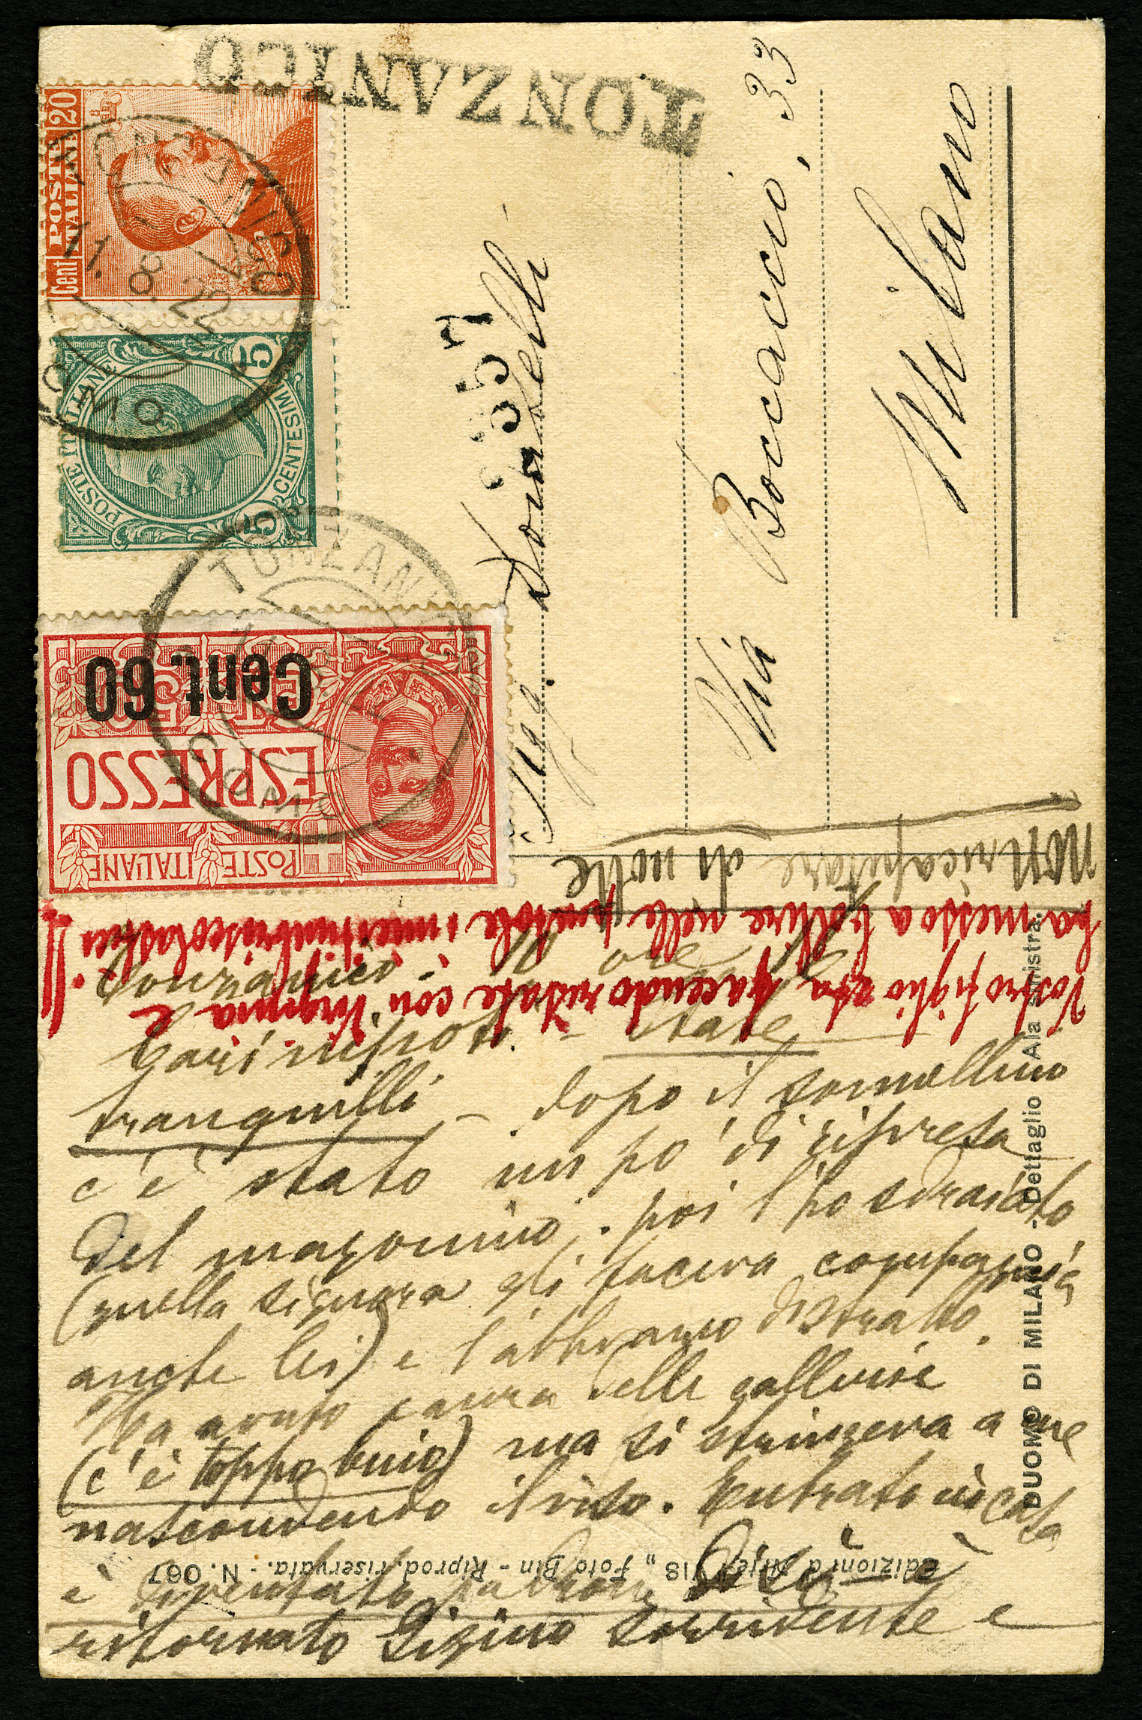 TONZANICO
Cent POSTE ITALIANE 20
TONZANICO
11.8.22
COMO
POSTE ITALIANE
5 CENTESIMI 5
TONZANICO
COMO
Cent. 60
ESPRESSO
POSTE ITALIANE
357
Sigg.
Via Boccaccio, 33
Milano
non ricapitare di notte
Vostro figlio sta facendo risate con Virginia e
ha messo a bollire nella pentola i miei
Tonzanico - 10 ore
Cari nipoti. - State
tranquilli - dopo il sonnellino
c'è stato un po' di ripresa
del magonino. poi l'ho sdraiato
(quella signora gli faceva compagnia
anche lei) e l'abbiamo distratto.
Ha avuto paura delle galluise
(c'è toppo buio) ma si stringeva a me
nascondendo il viso. Entrato in casa
è diventato padrone Oso è
ritornato Gigino sorridente e
DUOMO DI MILANO - Dettaglio Ala sinistra.
Edizioni d'Arte "VIS" Foto Bin - Riprod. riservata. - N. 067